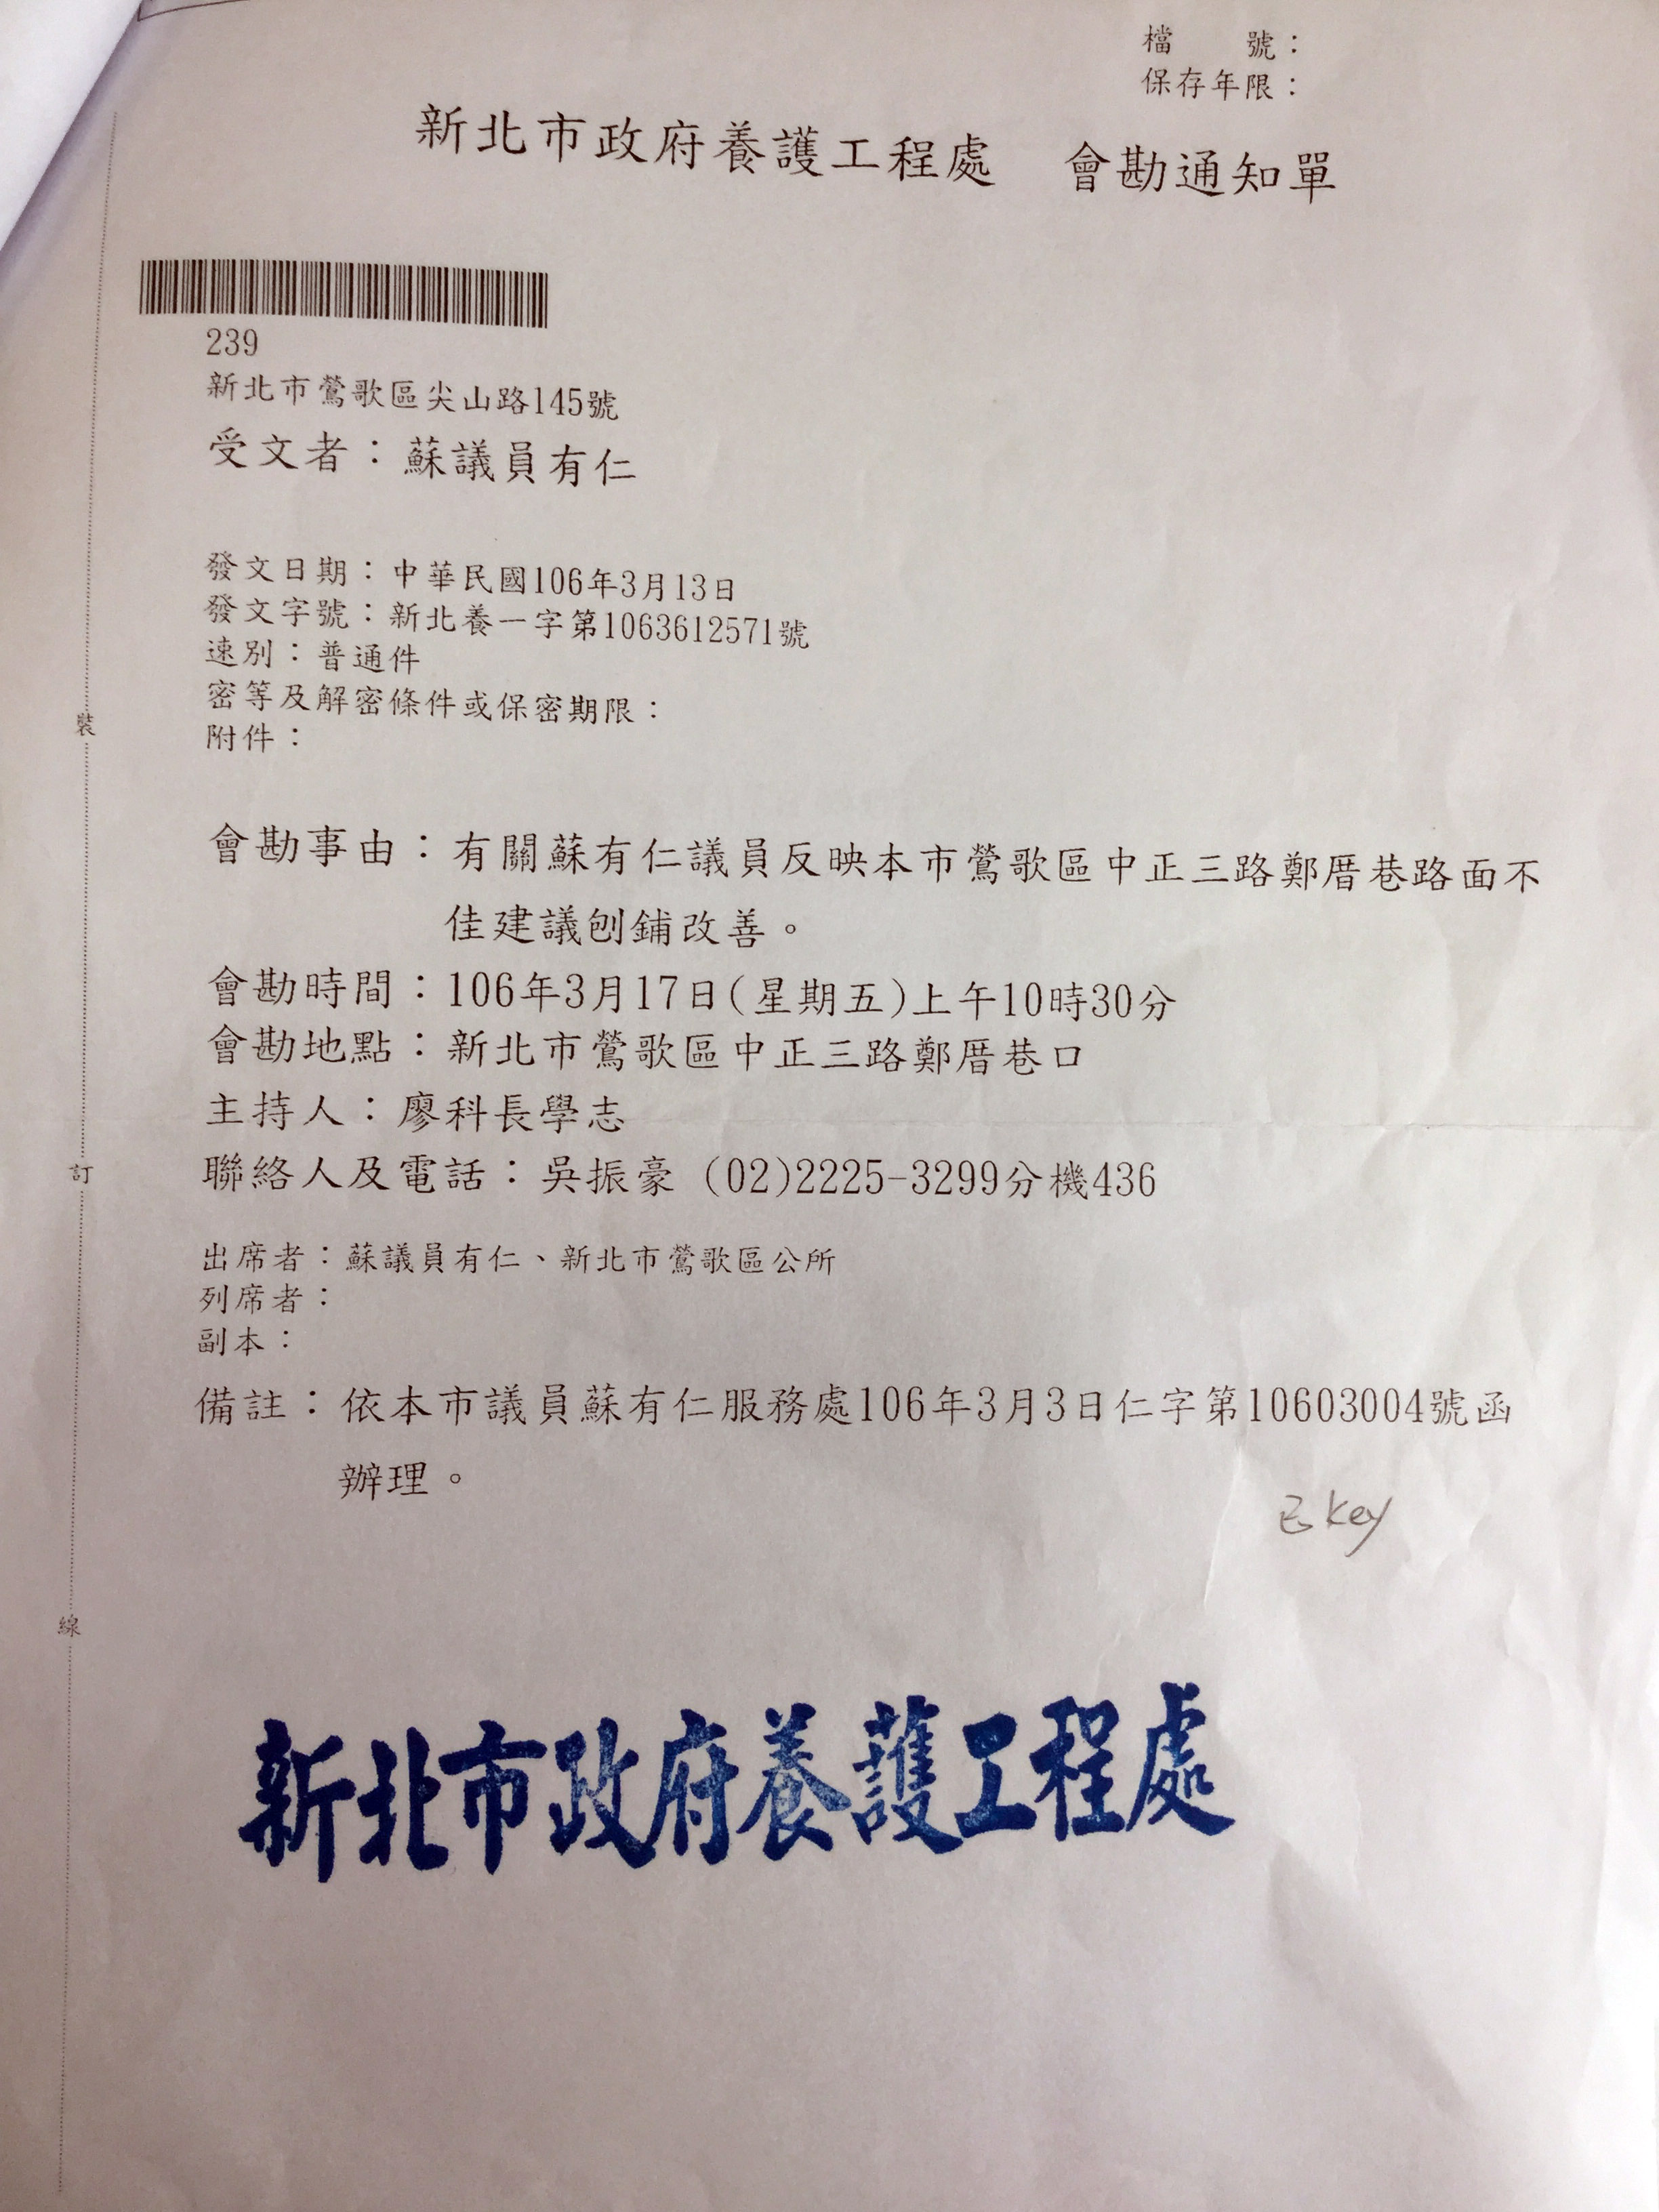 檔　　號：
保存年限：
新北市政府養護工程處　會勘通知單
239
新北市鶯歌區尖山路145號
受文者：蘇議員有仁
發文日期：中華民國106年3月13日
發文字號：新北養一字第1063612571號
速別：普通件
密等及解密條件或保密期限：
附件：
會勘事由：有關蘇有仁議員反映本市鶯歌區中正三路鄭厝巷路面不
佳建議刨鋪改善。
會勘時間：106年3月17日(星期五)上午10時30分
會勘地點：新北市鶯歌區中正三路鄭厝巷口
主持人：廖科長學志
聯絡人及電話：吳振豪 (02)2225-3299分機436
出席者：蘇議員有仁、新北市鶯歌區公所
列席者：
副本：
備註：依本市議員蘇有仁服務處106年3月3日仁字第10603004號函
辦理。
已key
新北市政府養護工程處
裝
訂
線